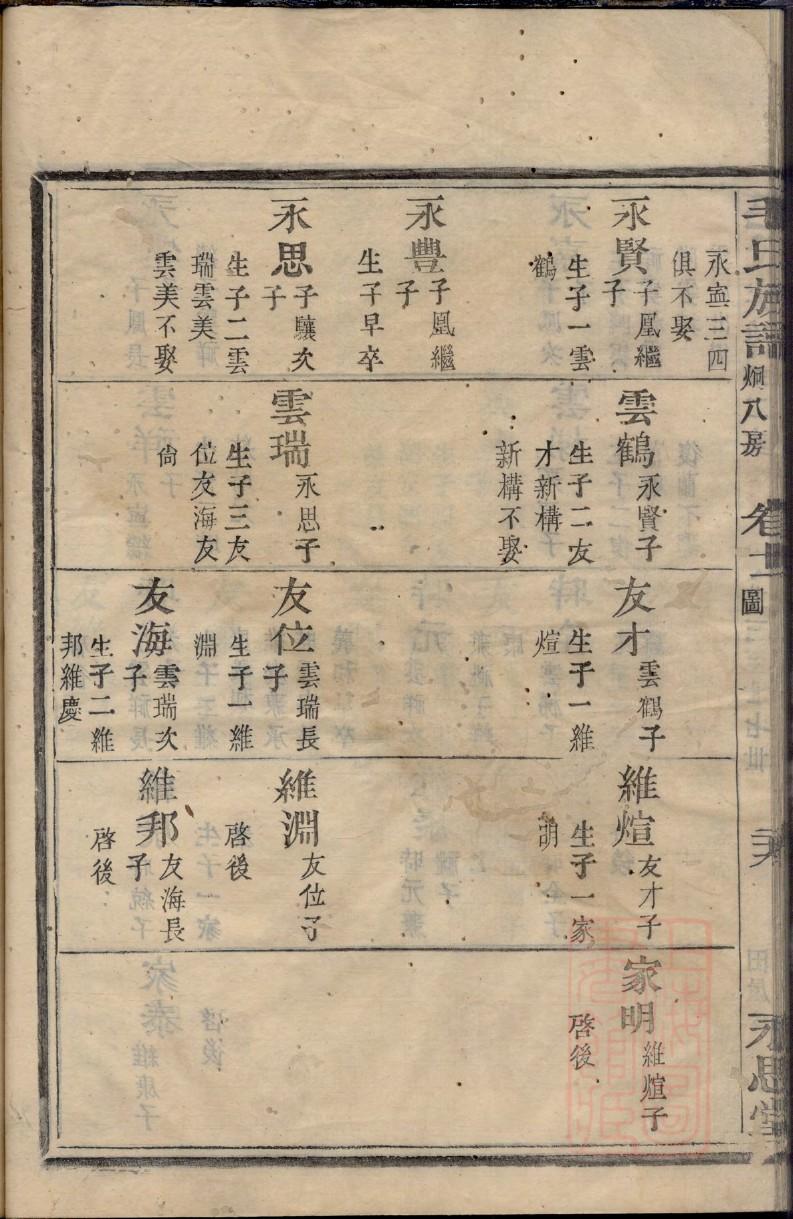 毛氏族譜 烱八房 卷十一 圖
永思堂
永寍三四
俱不娶
永賢 子鳳繼
子
生子一雲
鶴
永豐 子鳳繼
子
生子早卒
永思 子驤次
子
生子二雲
瑞雲美
雲美不娶
雲鶴 永賢子
生子二友
才新構
新構不娶
雲瑞 永思子
生子三友
位友海友
尙
友才 雲鶴子
生子一維
煊
友位 雲瑞長
子
生子一維
淵
友海 雲瑞次
子
生子二維
邦維慶
維煊 友才子
生子一家
明
維淵 友位子
啓後
維邦 友海長
子
啓後
家明 維煊子
啓後